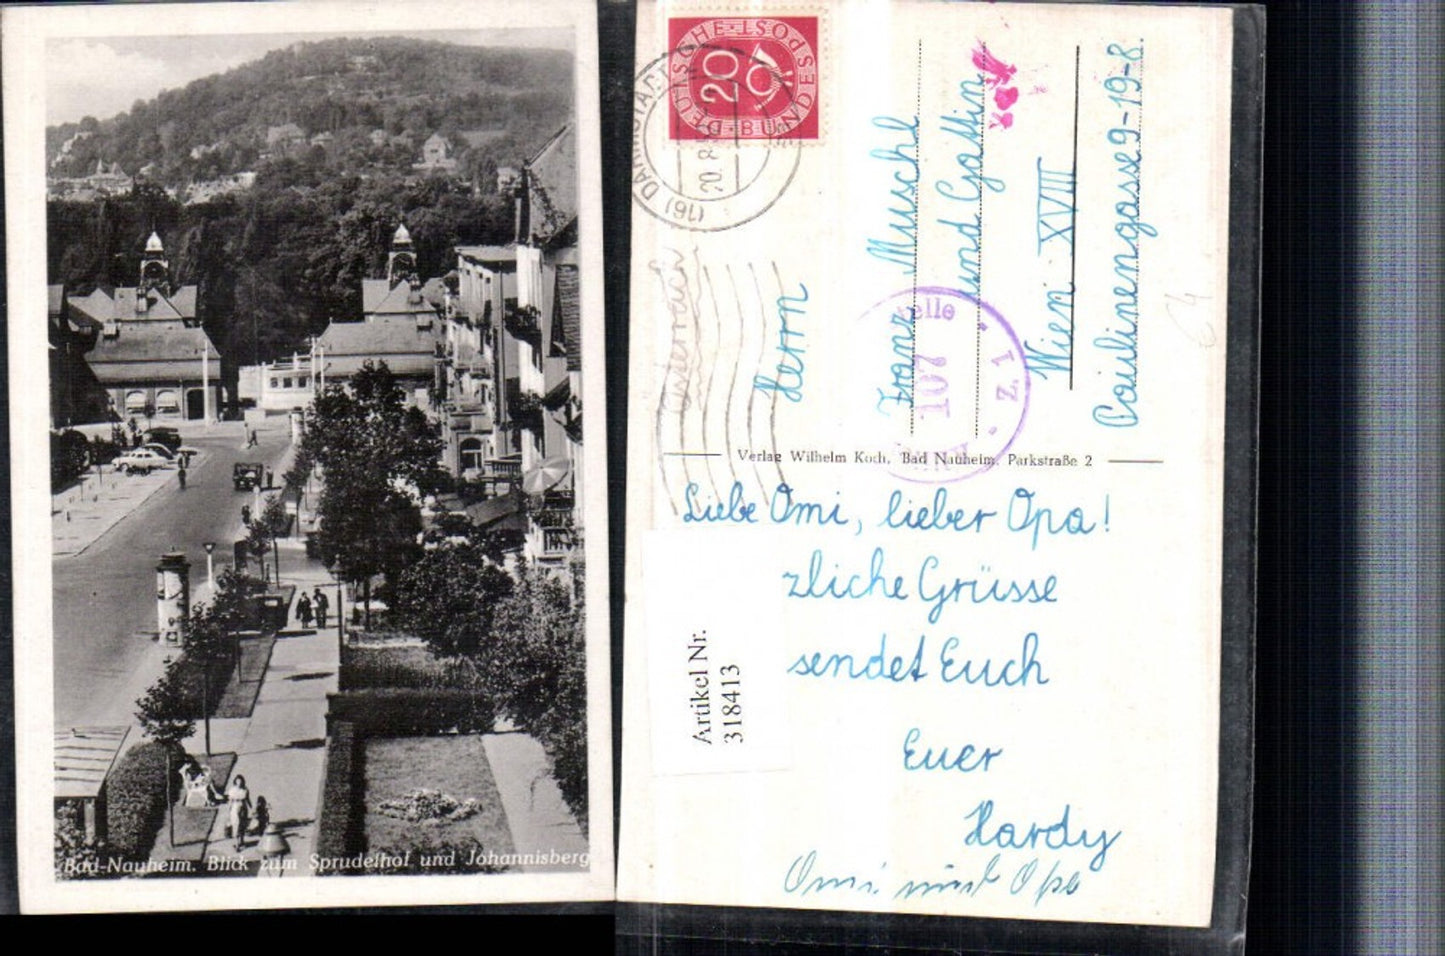 Bad-Nauheim. Blick zum Sprudelhof und Johannisberg
DEUTSCHE BUNDESPOST
20
(16) DARMSTADT
20.8.
Österreich
Herrn
Franz Muschl
und Gattin
Wien XVIII
Paulinengasse 9-19-8.
107
Z. 1
Verlag Wilhelm Koch, Bad Nauheim, Parkstraße 2
Liebe Omi, lieber Opa!
zliche Grüsse
sendet Euch
Euer
Hardy
Omi und Opa
Artikel Nr.
318413